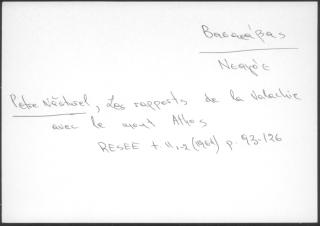 Βασαράβας
Νεαγόε
Petre Năsturel, Les rapports de la Valachie
avec le mont Athos
RESEE t. II, 1-2 (1964) p. 93-126